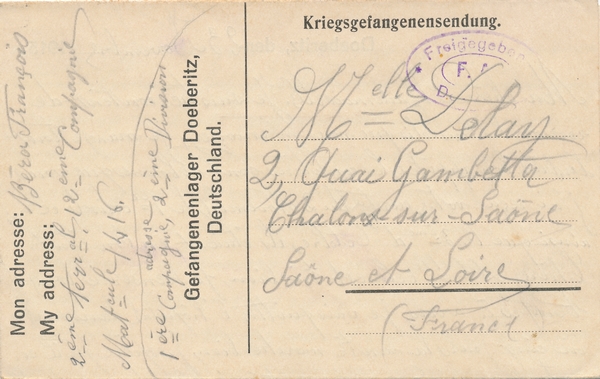 Kriegsgefangenensendung.
Freigegeben
F. A.
D.
Melle Delay
2, Quai Gambetta
Chalon-sur-Saône
Saône et Loire
(France)
Mon adresse:
My address:
François
2ème 12ème Compagnie
Matricule 1416
adresse
1ère Compagnie, 2ème Division
Gefangenenlager Doeberitz,
Deutschland.